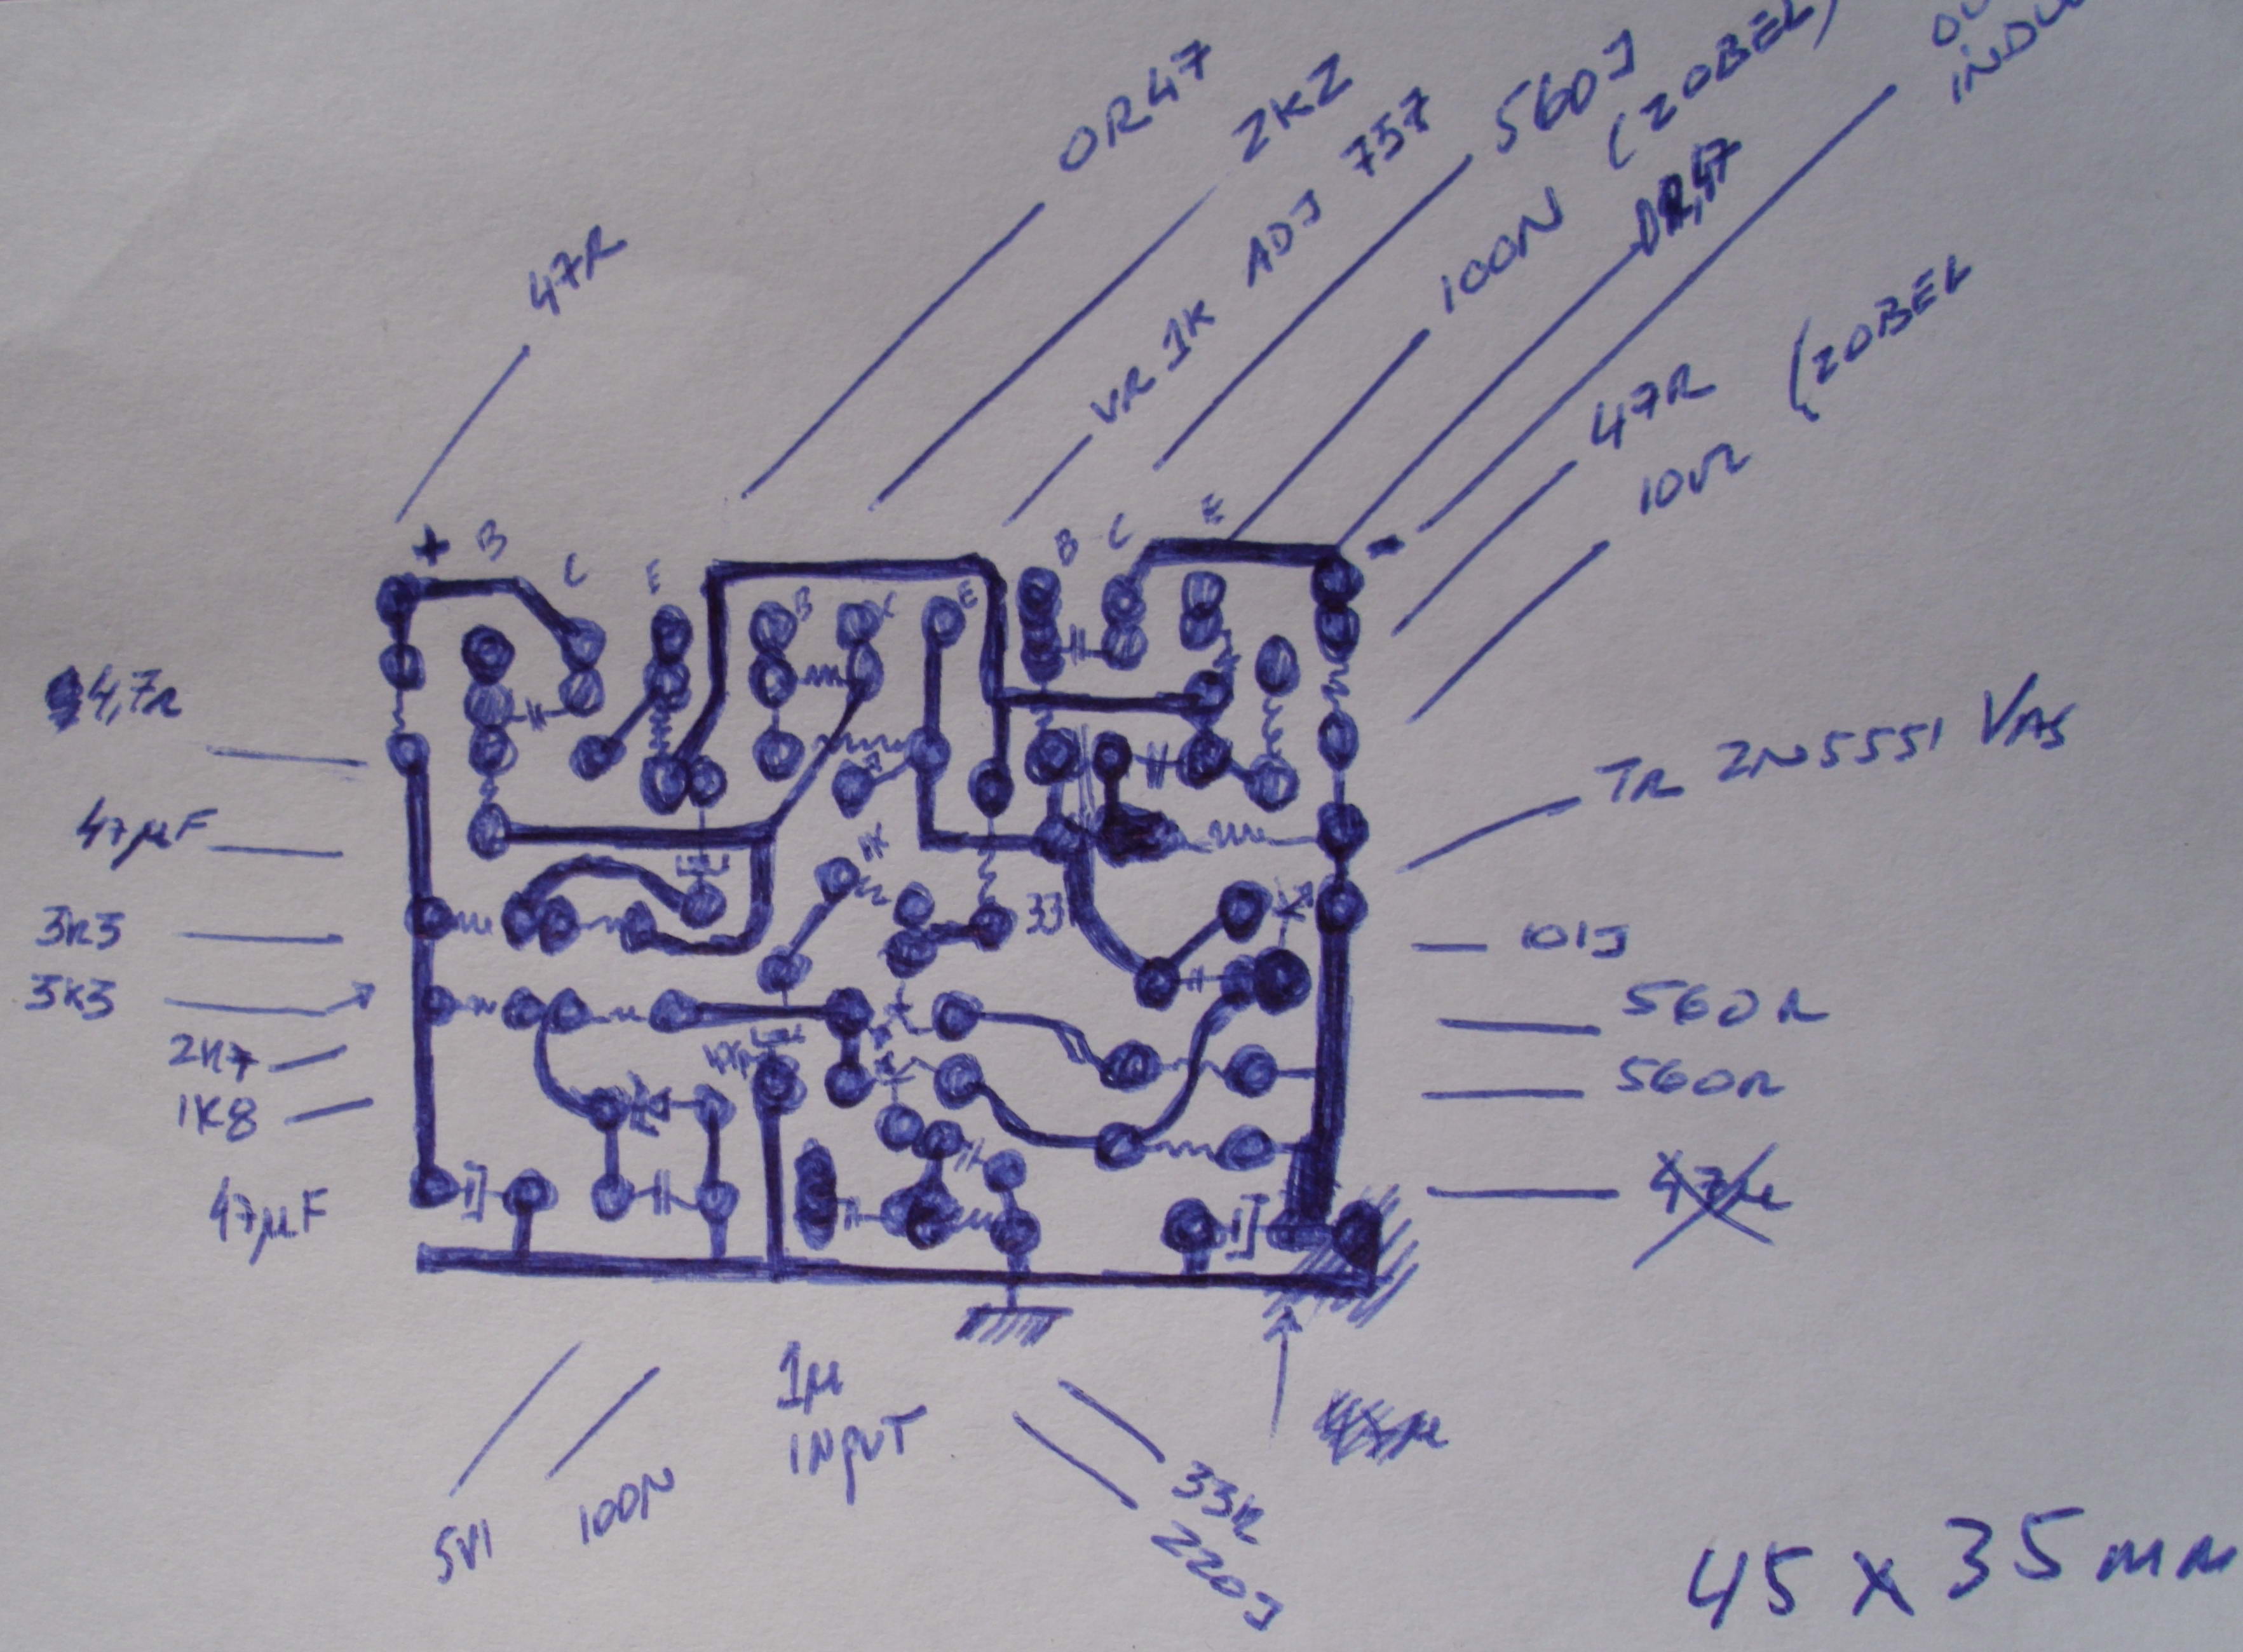 OR47
2K2
VR 1K ADJ 757
560J
100N (ZOBEL)
0R,47
47R
47R
10R (ZOBEL
TR 2N5551 VAS
+ B C E
B E
B C E
-
4,7R
47µF
3K3
3K3
2K7
1K8
47µF
1K
33
47µ
101J
560R
560R
47µ
5V1
100N
1µ
INPUT
33K
220J
45 x 35 mm